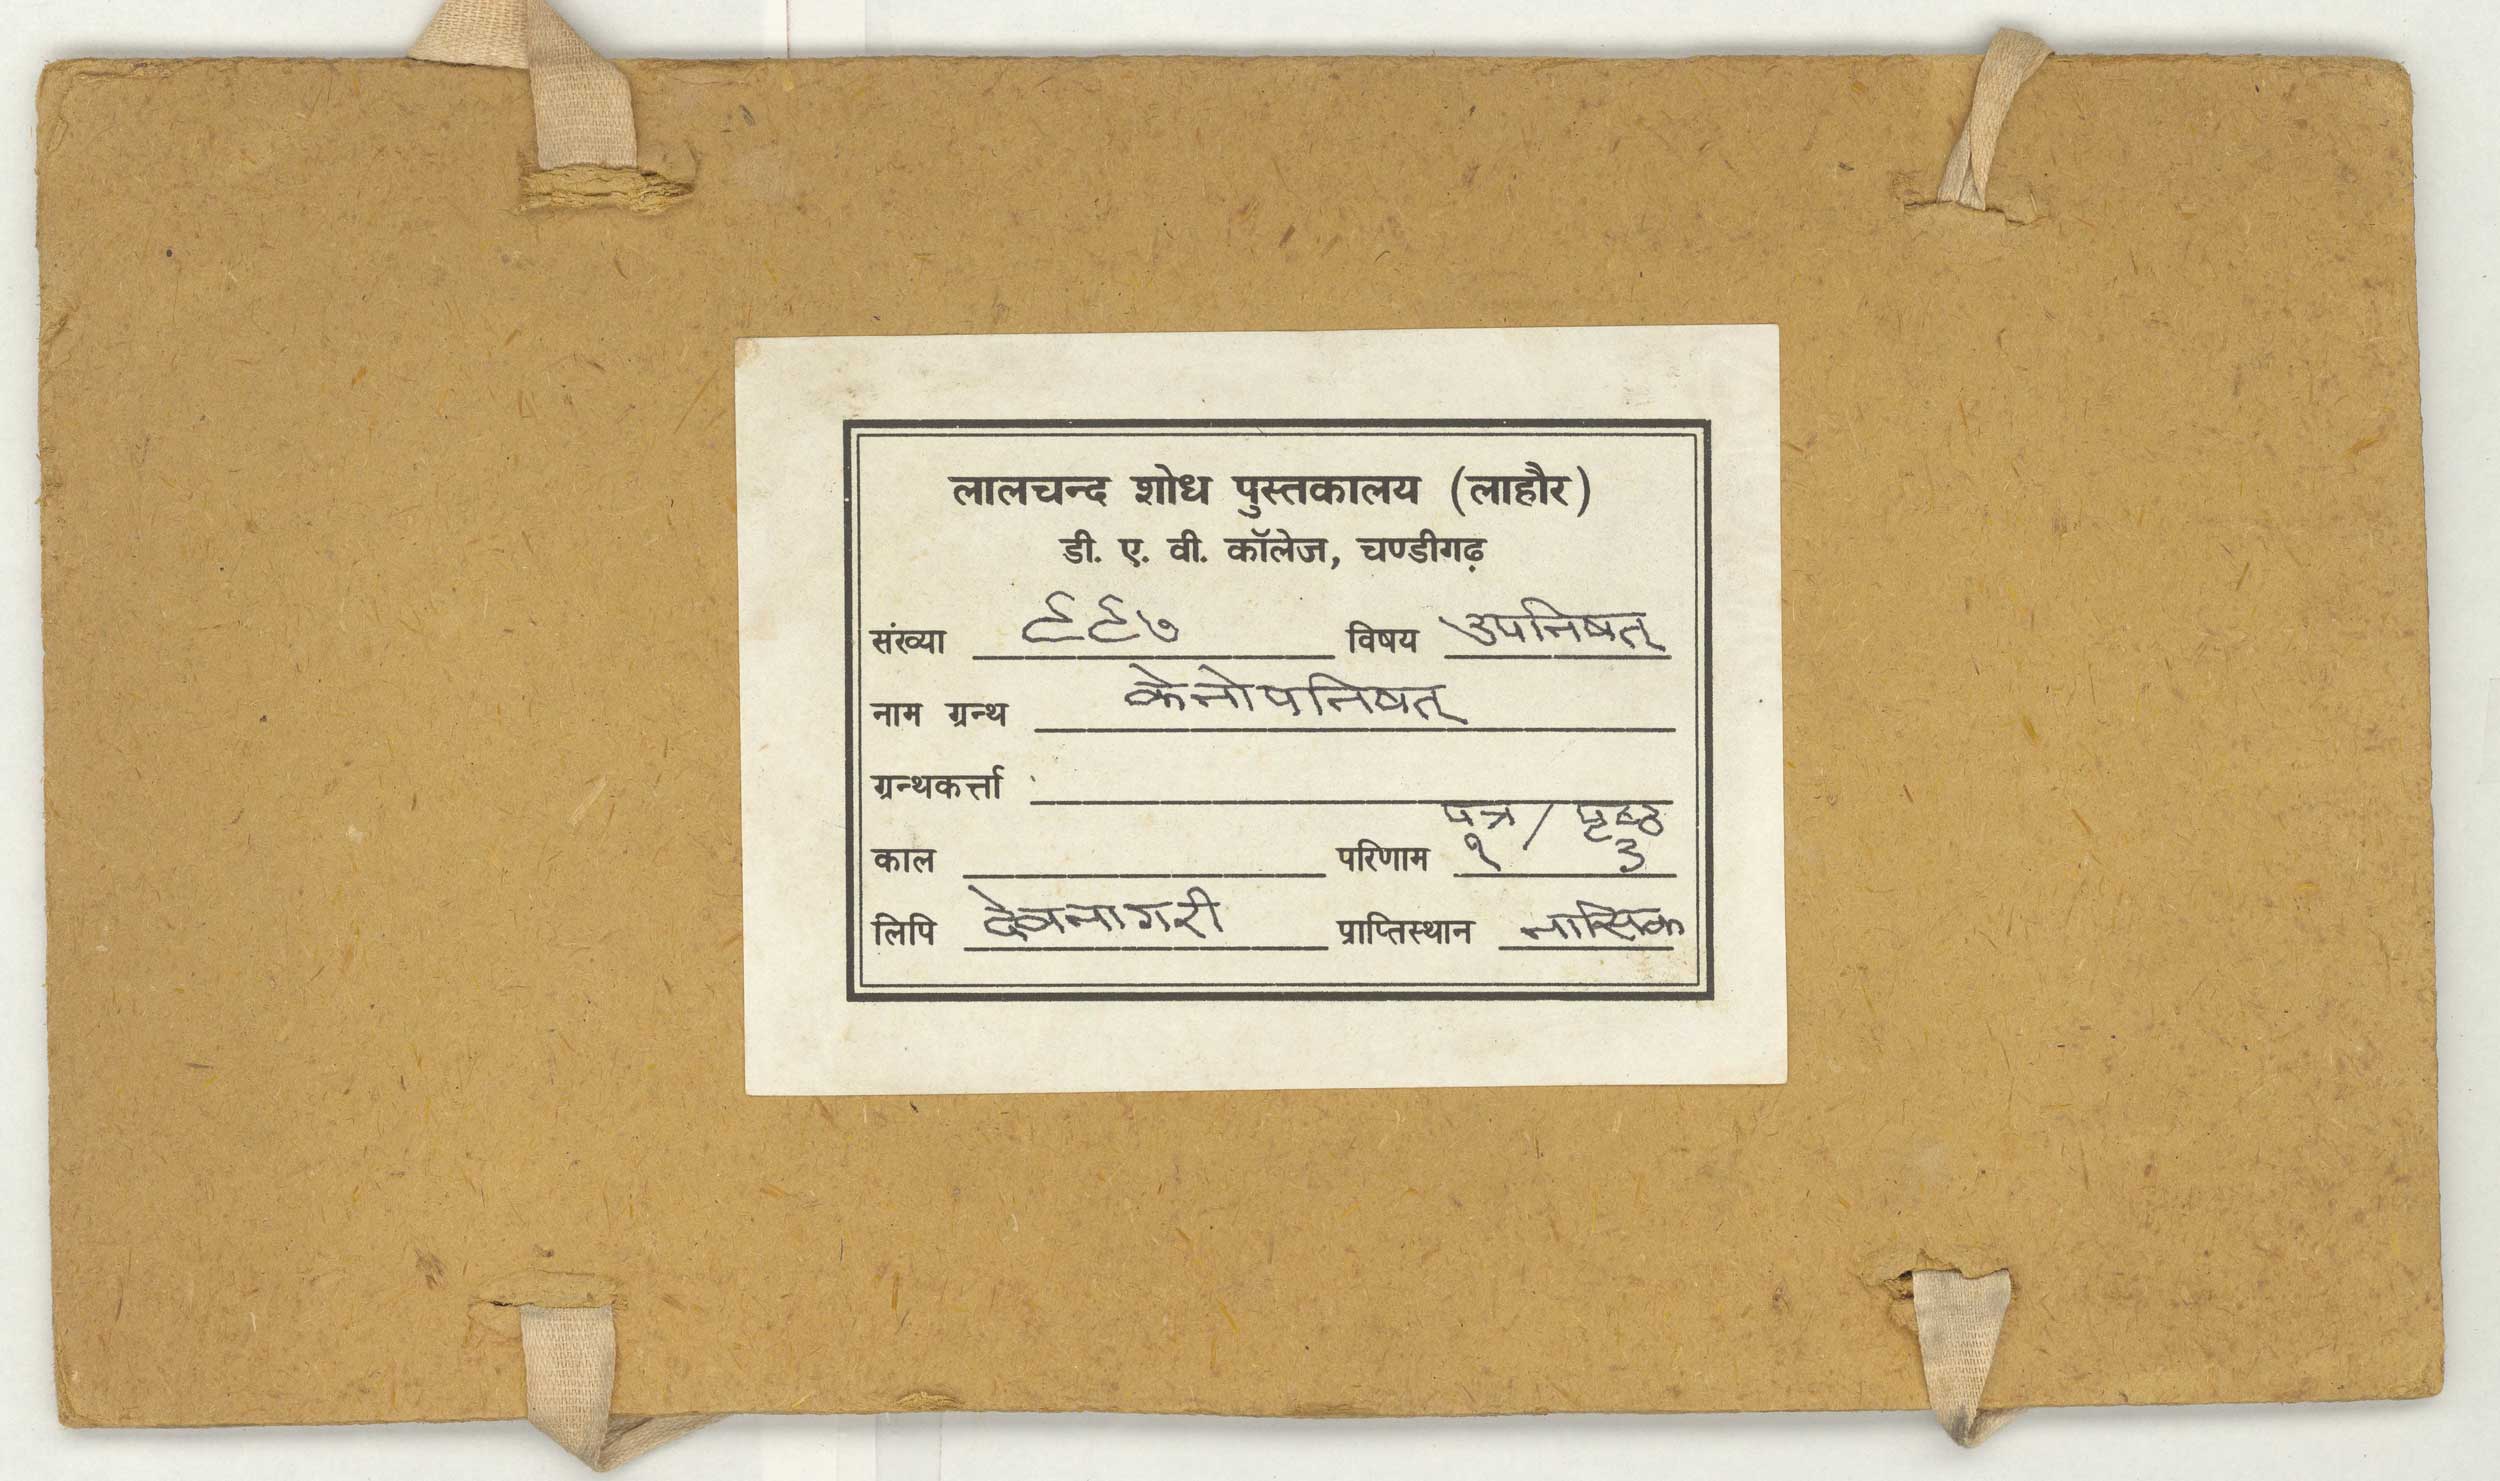 लालचन्द शोध पुस्तकालय (लाहौर)
डी. ए. वी. कॉलेज, चण्डीगढ़
संख्या ९९७ विषय उपनिषत्
नाम ग्रन्थ केनोपनिषत्
ग्रन्थकर्त्ता
पत्र / पृष्ठ
काल परिणाम १ / ३
लिपि देवनागरी प्राप्तिस्थान नासिक